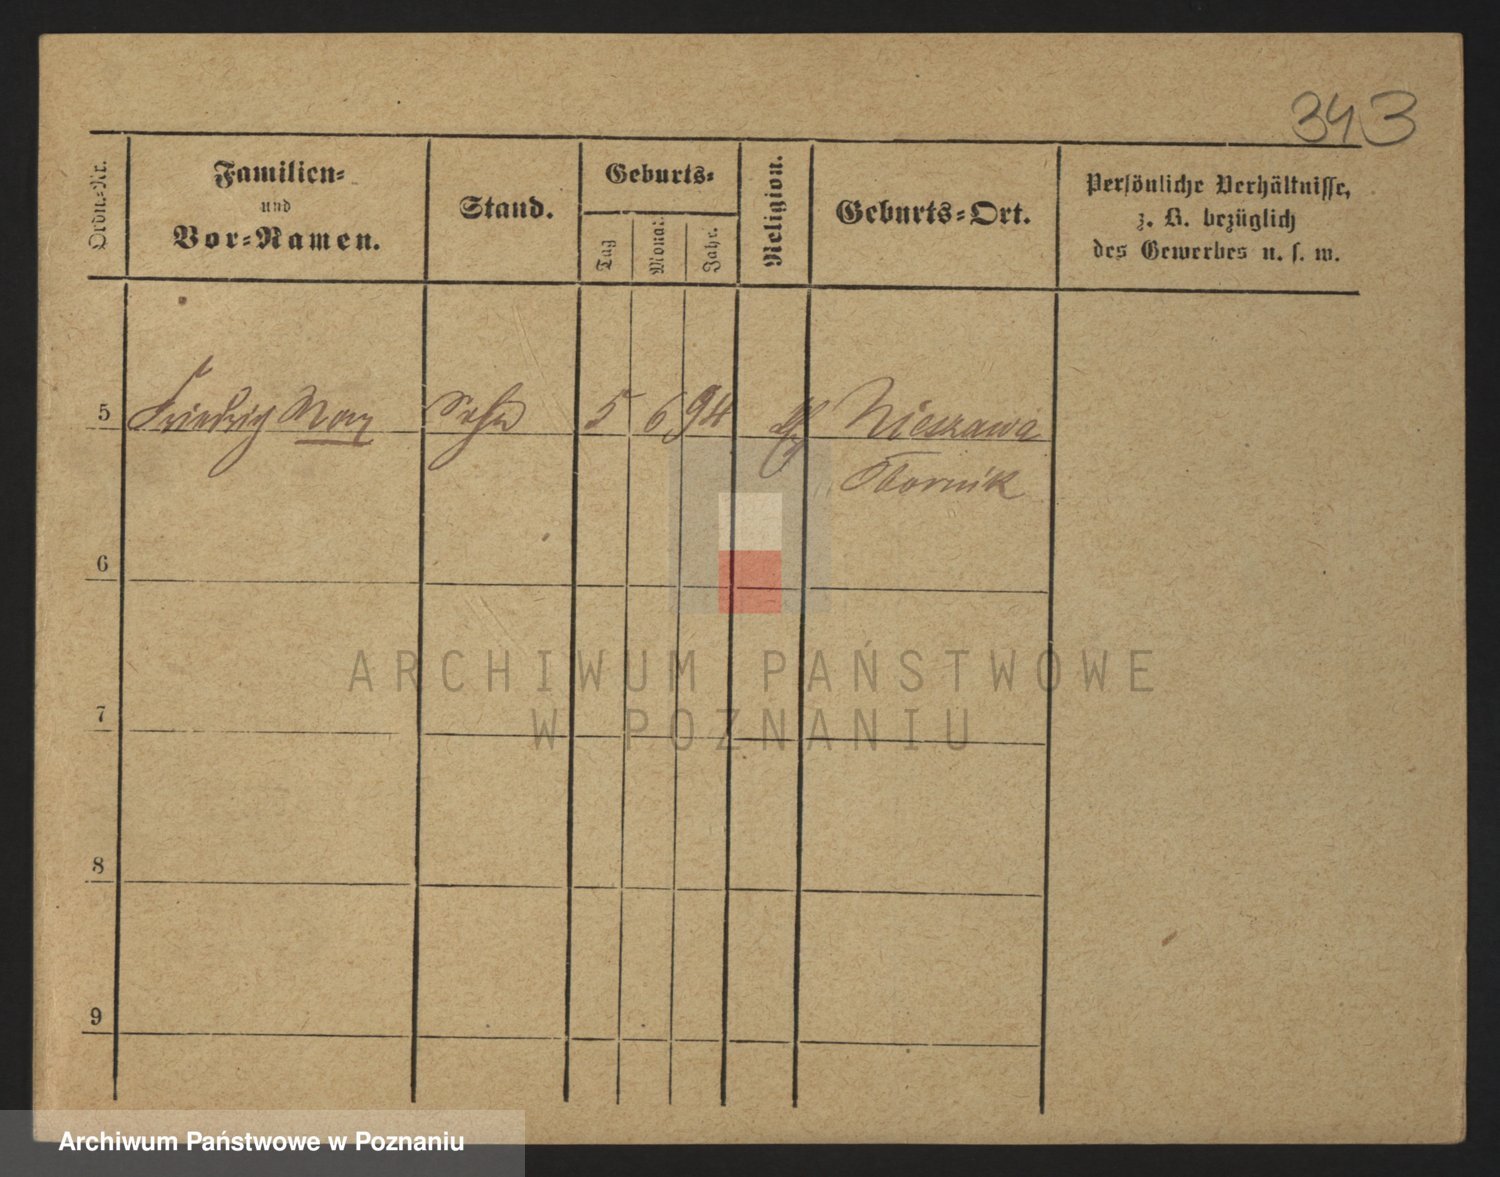 343
Ordn.-Nr.
Familien-
und
Vor-Namen.
Stand.
Geburts-
Tag
Monat
Jahr.
Religion.
Geburts-Ort.
Persönliche Verhältnisse,
z. B. bezüglich
des Gewerbes u. s. w.
5 Friedrich Max Sohn 5 6 94 Nieszawa
Obornik
6
7
8
9
ARCHIWUM PAŃSTWOWE
W POZNANIU
Archiwum Państwowe w Poznaniu